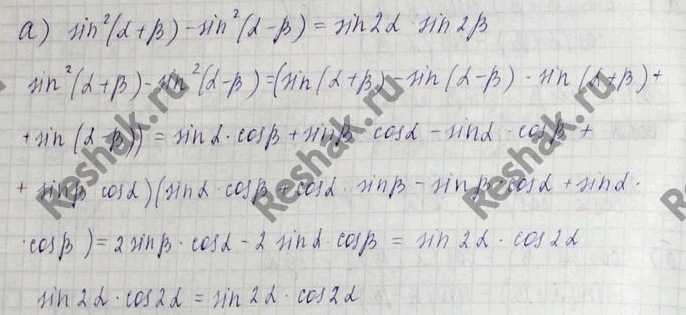 а) sin²(α+β)-sin²(α-β) = sin2α · sin2β
sin²(α+β)-sin²(α-β)=(sin(α+β)-sin(α-β) · sin(α+β)+
+sin(α-β)) = sinα·cosβ+sinβ·cosα-sinα·cosβ+
+ sinβ·cosα)(sinα·cosβ+cosα·sinβ-sinβ·cosα+sinα·
·cosβ)=2sinβ·cosα-2sinα·cosβ = sin2α·cos2α
sin2α·cos2α = sin2α·cos2α
Reshak.ru
Reshak.ru
Reshak.ru